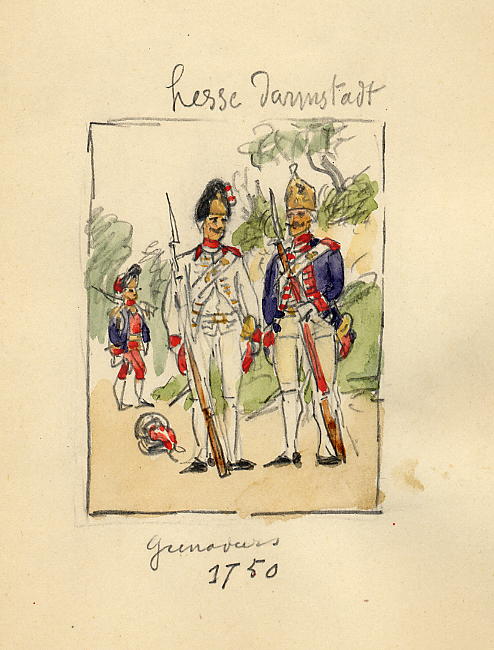 hesse Darmstadt
Grenadiers
1750